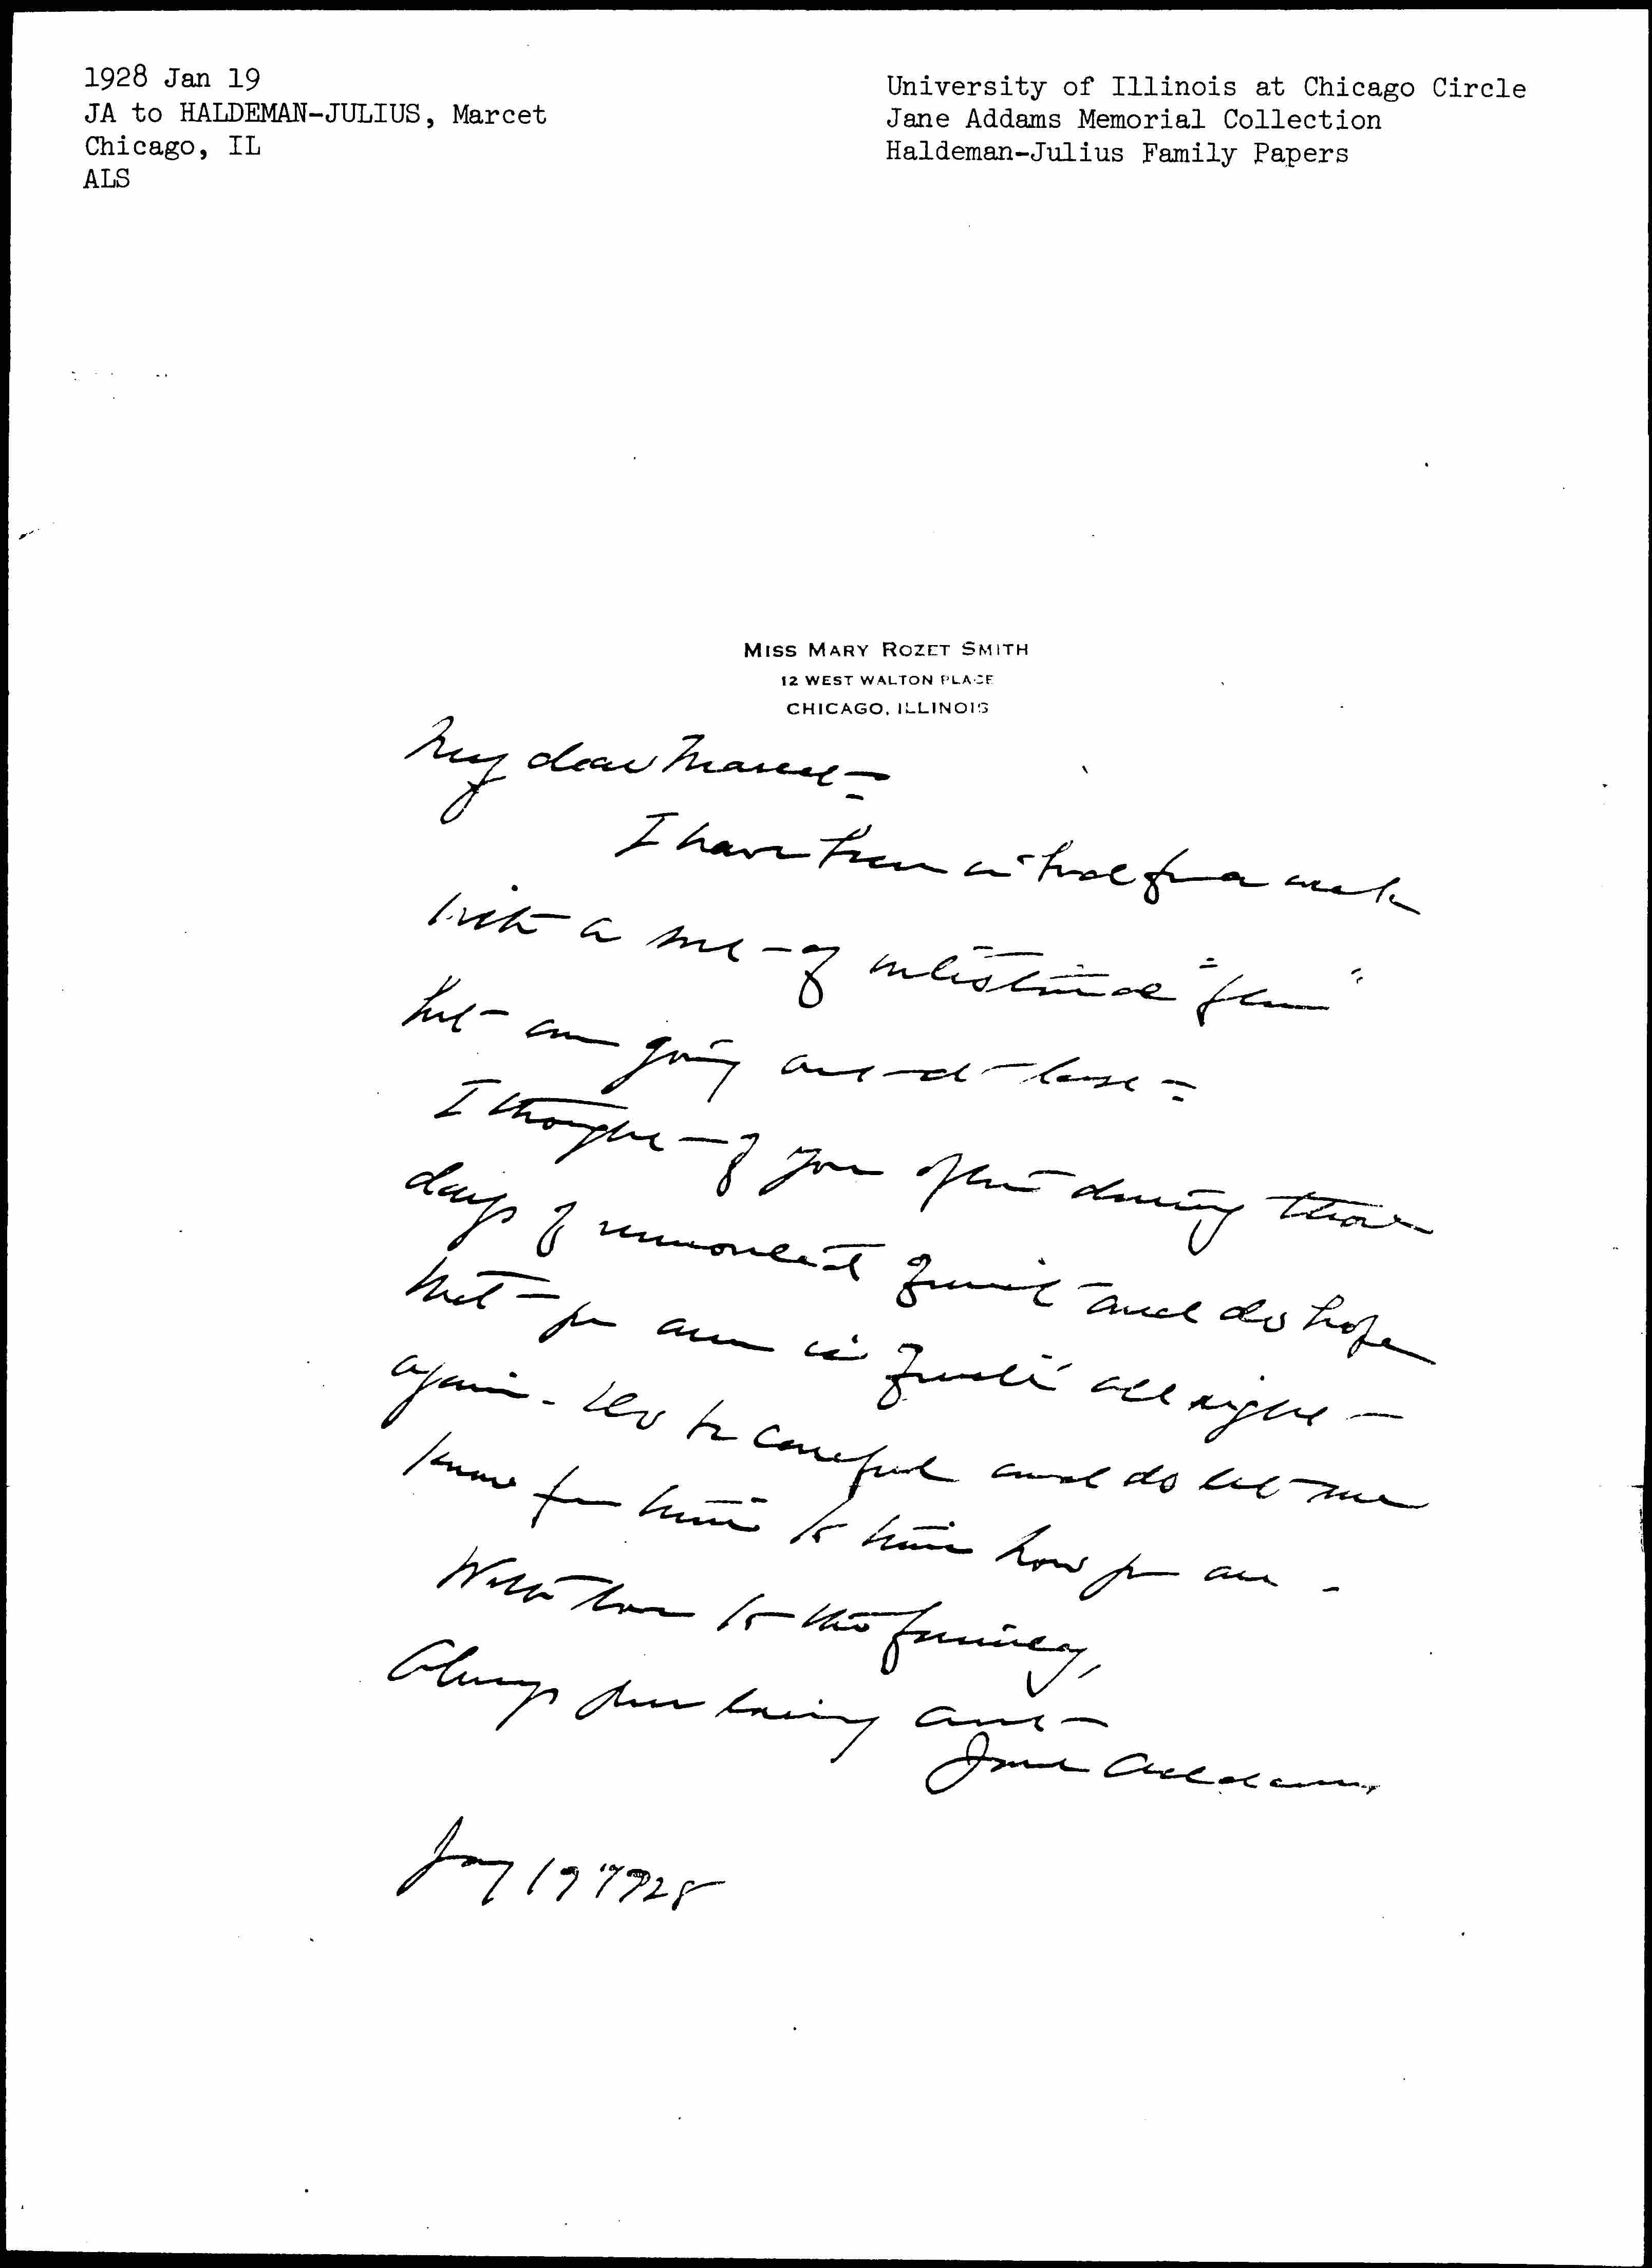 1928 Jan 19
JA to HALDEMAN-JULIUS, Marcet
Chicago, IL
ALS
University of Illinois at Chicago Circle
Jane Addams Memorial Collection
Haldeman-Julius Family Papers
MISS MARY ROZET SMITH
12 WEST WALTON PLACE
CHICAGO, ILLINOIS
My dear Marcet =
I have been in bed for a week
with a sort of intestinal "flu"
but am going out at last =
I thought of you often during those
days of and do hope
that you are in all right
again. Do be careful and do let me
know from time to time how you are.
With love to the family,
Always your loving aunt
Jane Addams
Jany 19" 1928